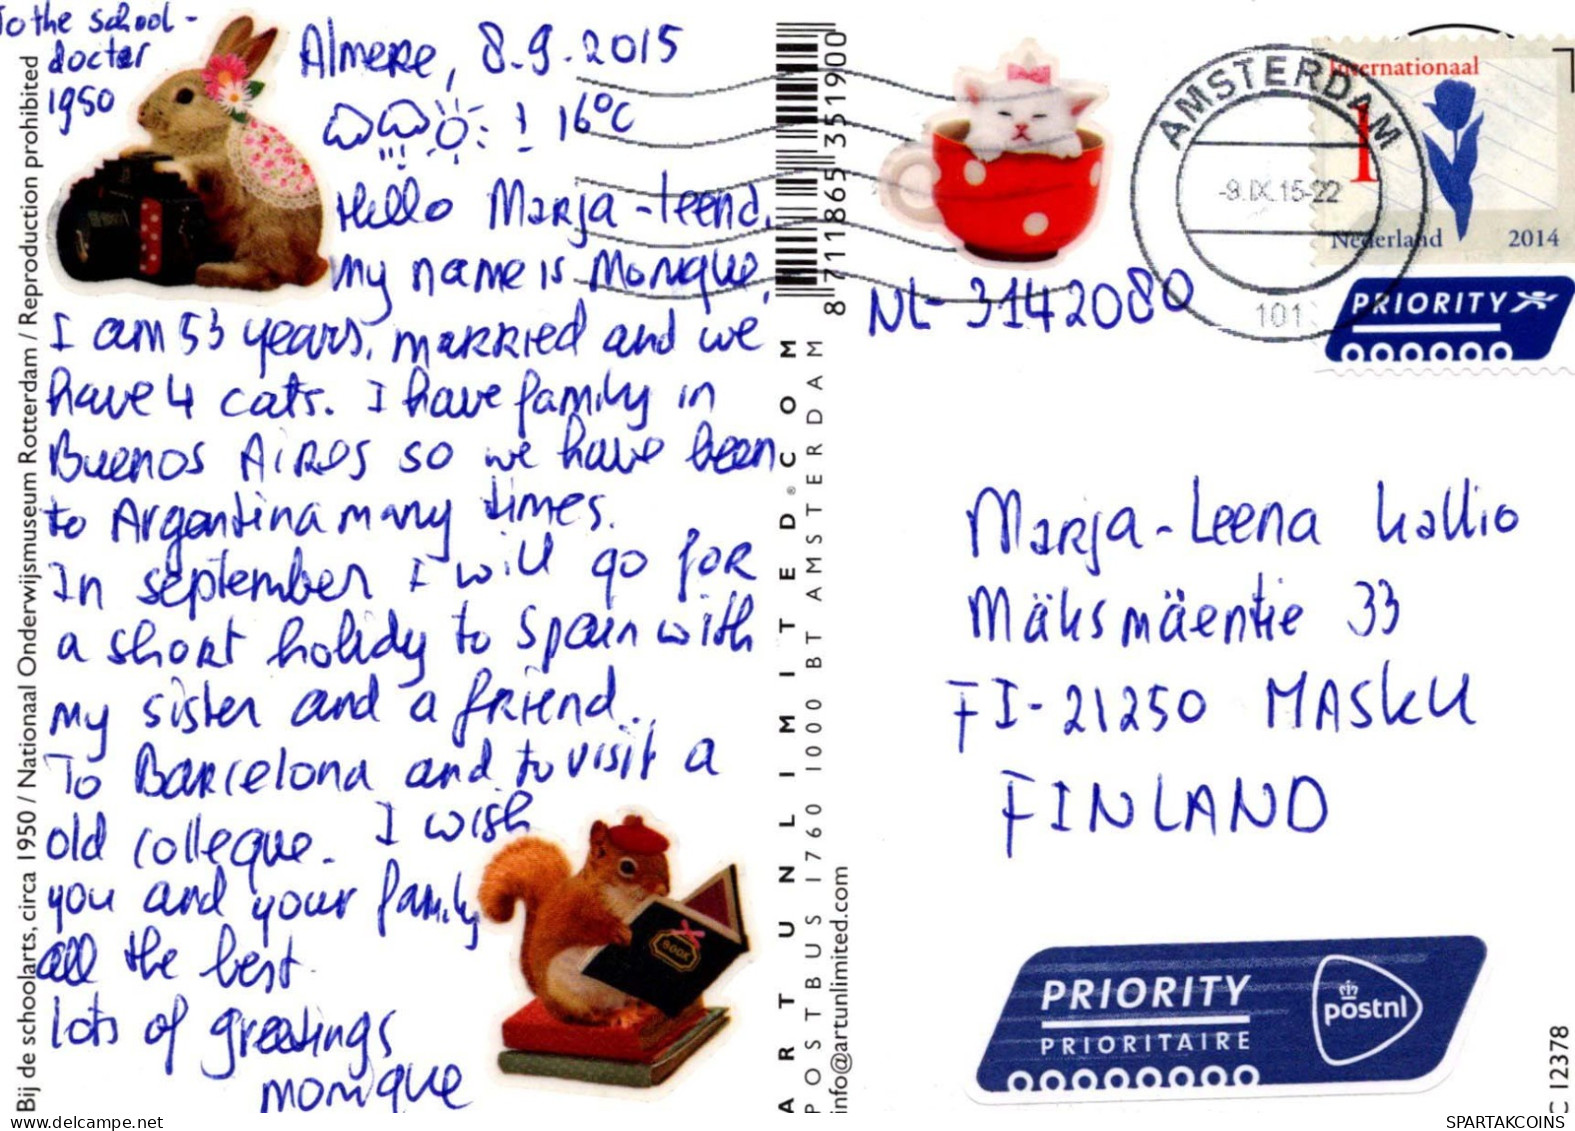 To the school-
doctor
1950
Almere, 8.9.2015
! 16°C
Hello Marja-leena,
my name is Monique,
I am 53 years, married and we
have 4 cats. I have family in
Buenos Aires so we have been
to Argentina many times.
In september I will go for
a short holidy to Spain with
my sister and a friend.
To Barcelona and to visit a
old colleque. I wish
you and your family
all the best.
lots of greetings
monique
Bij de schoolarts, circa 1950 / Nationaal Onderwijsmuseum Rotterdam / Reproduction prohibited
BOOK
8 711865 351900
ARTUNLIMITED.®COM
POSTBUS 1760 1000 BT AMSTERDAM
info@artunlimited.com
AMSTERDAM
-9.IX.15-22
101
Internationaal
1
Nederland 2014
PRIORITY
NL-3142080
Marja-Leena Kallio
Mäksmäentie 33
FI-21250 MASKU
FINLAND
PRIORITY
PRIORITAIRE
postnl
C 12378
SPARTAKCOINS